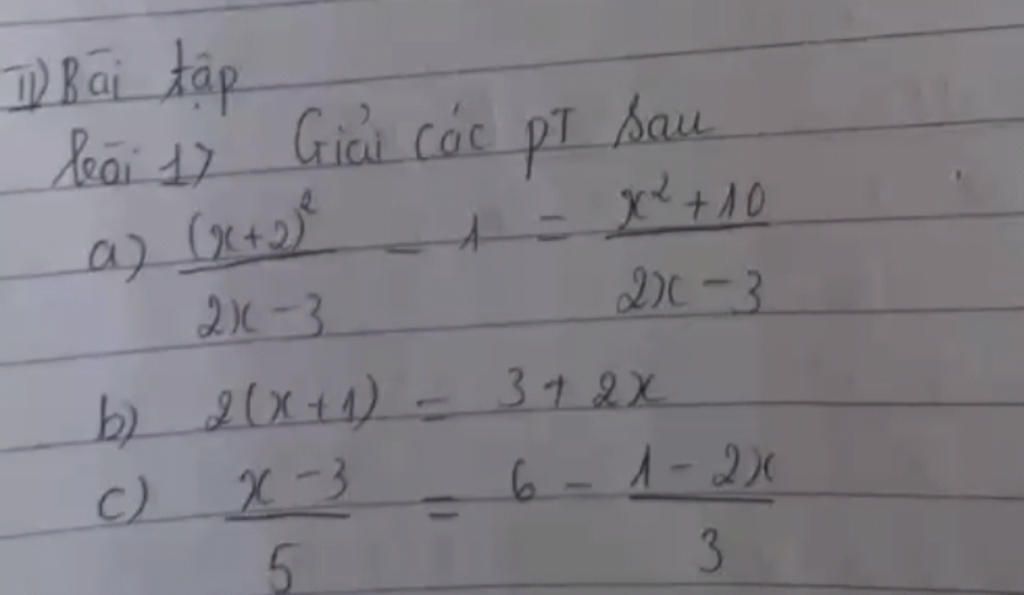 II) Bài tập
Bài 1> Giải các pT sau
a) (x+2)² / 2x-3 - 1 = x²+10 / 2x-3
b) 2(x+1) = 3+2x
c) x-3 / 5 = 6 - 1-2x / 3